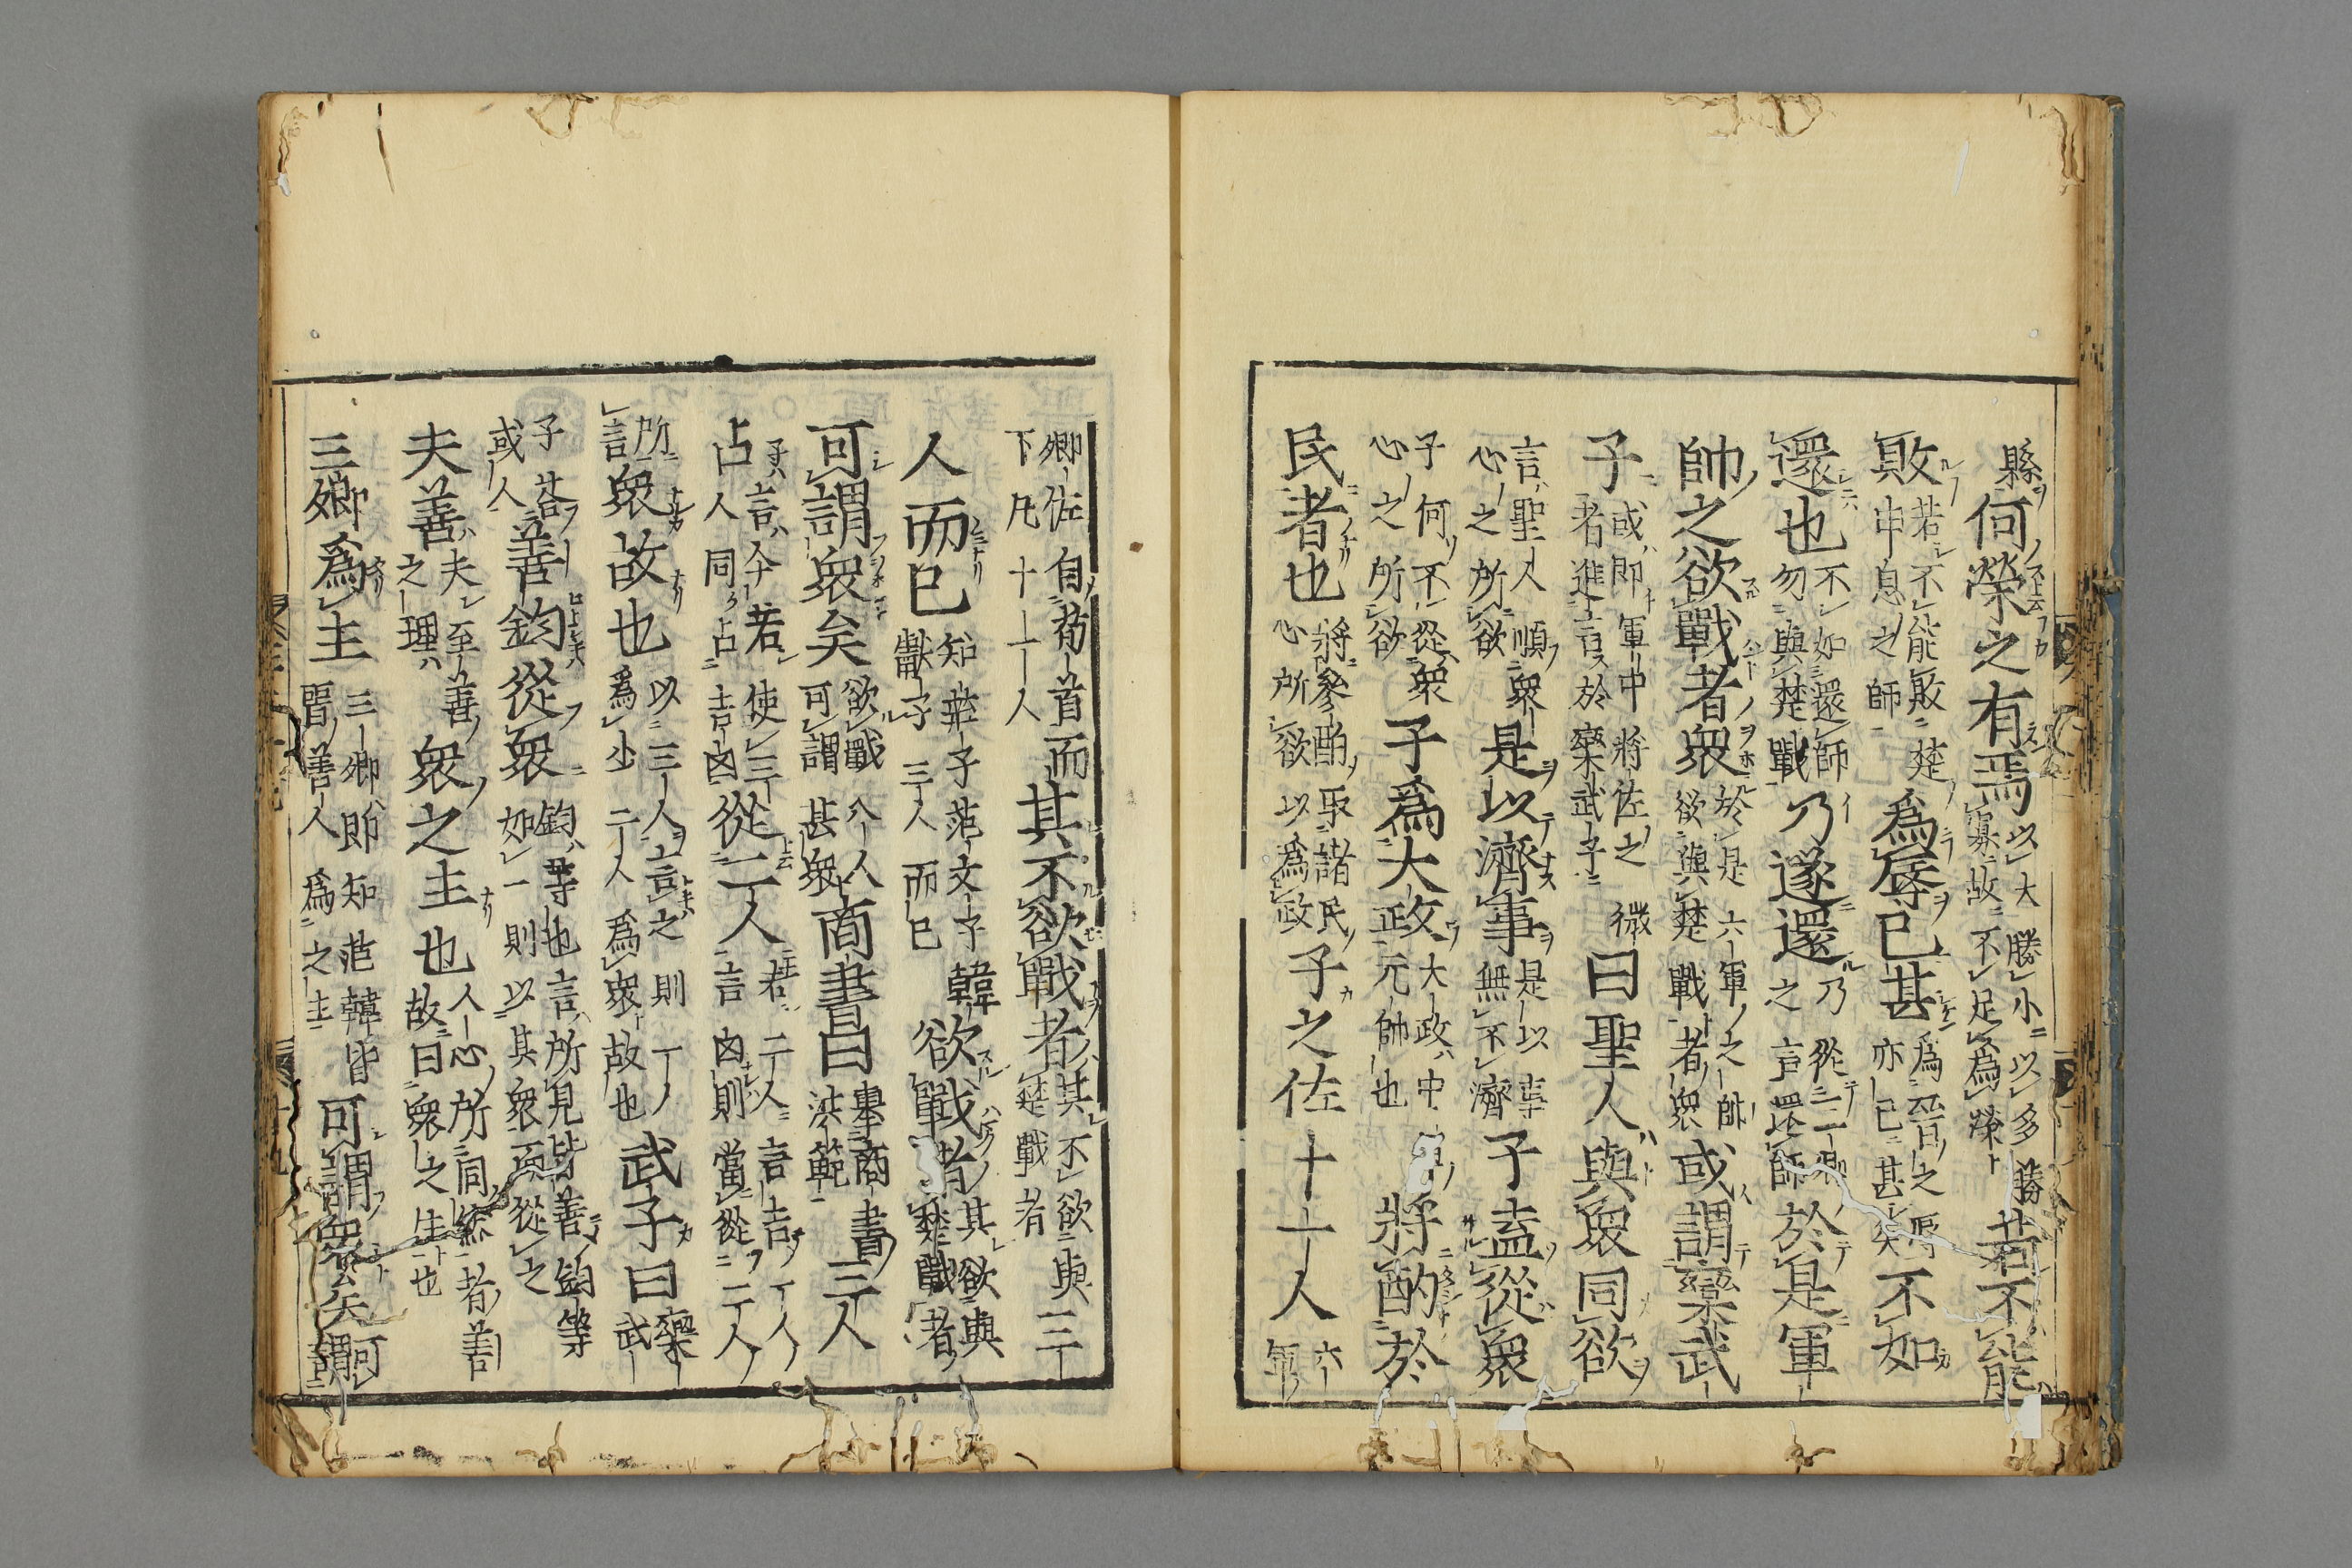 縣何榮之有焉以大勝小以多勝寡故不足爲榮若不能
敗若不能敗楚申息之師爲辱已甚爲晉之辱亦已甚矣不如
還也不如還師勿與楚戰乃遂還乃從三卿之言還師於是軍
帥之欲戰者衆於是六軍之帥欲與楚戰者衆或謂欒武
子或即軍中將佐之徵者進言於欒武子曰聖人與衆同欲
言聖人順衆心之所欲是以濟事是以事無不濟子盍從衆
子何不從衆心之所欲子爲大政大政中軍元帥也將酌於
民者也將參酌取諸民心所欲以爲政子之佐十一人六軍
卿佐自荀首而下凡十一人其不欲戰者其不欲與楚戰者三
人而已知莊子范文子韓獻子三人而已欲戰者其欲與楚戰者
可謂衆矣欲戰八人可謂甚衆商書曰擧商書洪範三人
占子言今若使三人同占吉凶從二人若二人言吉一人言凶則當從二人
所言衆故也以三人言之則二人爲衆一人爲少故也武子曰欒武
子荅或人善鈞從衆鈞等也言所見皆善鈞等如一則以其衆而從之
夫善夫至善之理衆之主也人心所同然者善故曰衆之主也
三卿爲主三卿即知范韓皆賢善人爲之主可謂衆矣可謂